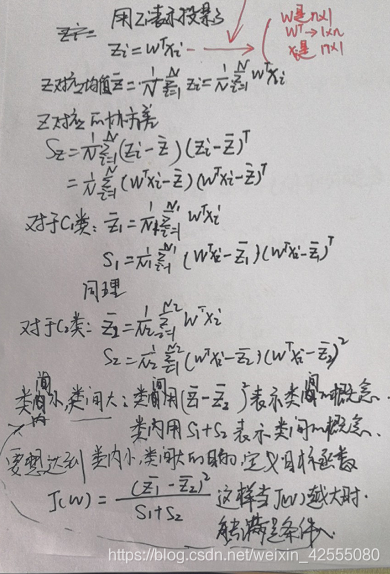 用Zi表示投影了
Zi = WᵀXi
W是 n×1
Wᵀ→1×n
Xi是 n×1
Z对应均值 Z̄ = 1/N Σ_{i=1}^{N} Zi = 1/N Σ_{i=1}^{N} WᵀXi
Z对应的协方差
Sz = 1/N Σ_{i=1}^{N} (Zi - Z̄)(Zi - Z̄)ᵀ
= 1/N Σ_{i=1}^{N} (WᵀXi - Z̄)(WᵀXi - Z̄)ᵀ
对于C1类: Z̄1 = 1/N1 Σ_{i=1}^{N1} WᵀXi
S1 = 1/N1 Σ_{i=1}^{N1} (WᵀXi - Z̄1)(WᵀXi - Z̄1)ᵀ
同理
对于C2类: Z̄2 = 1/N2 Σ_{i=1}^{N2} WᵀXi
S2 = 1/N2 Σ_{i=1}^{N2} (WᵀXi - Z̄2)(WᵀXi - Z̄2)²
类内小,类间大: 类间用(Z̄1 - Z̄2)²表示类间的概念.
类内用S1+S2表示类间的概念
要想达到类内小,类间大的目的,定义目标函数
J(W) = (Z̄1 - Z̄2)² / S1+S2 这样当J(W)越大时
能满足条件.
https://blog.csdn.net/weixin_42555080